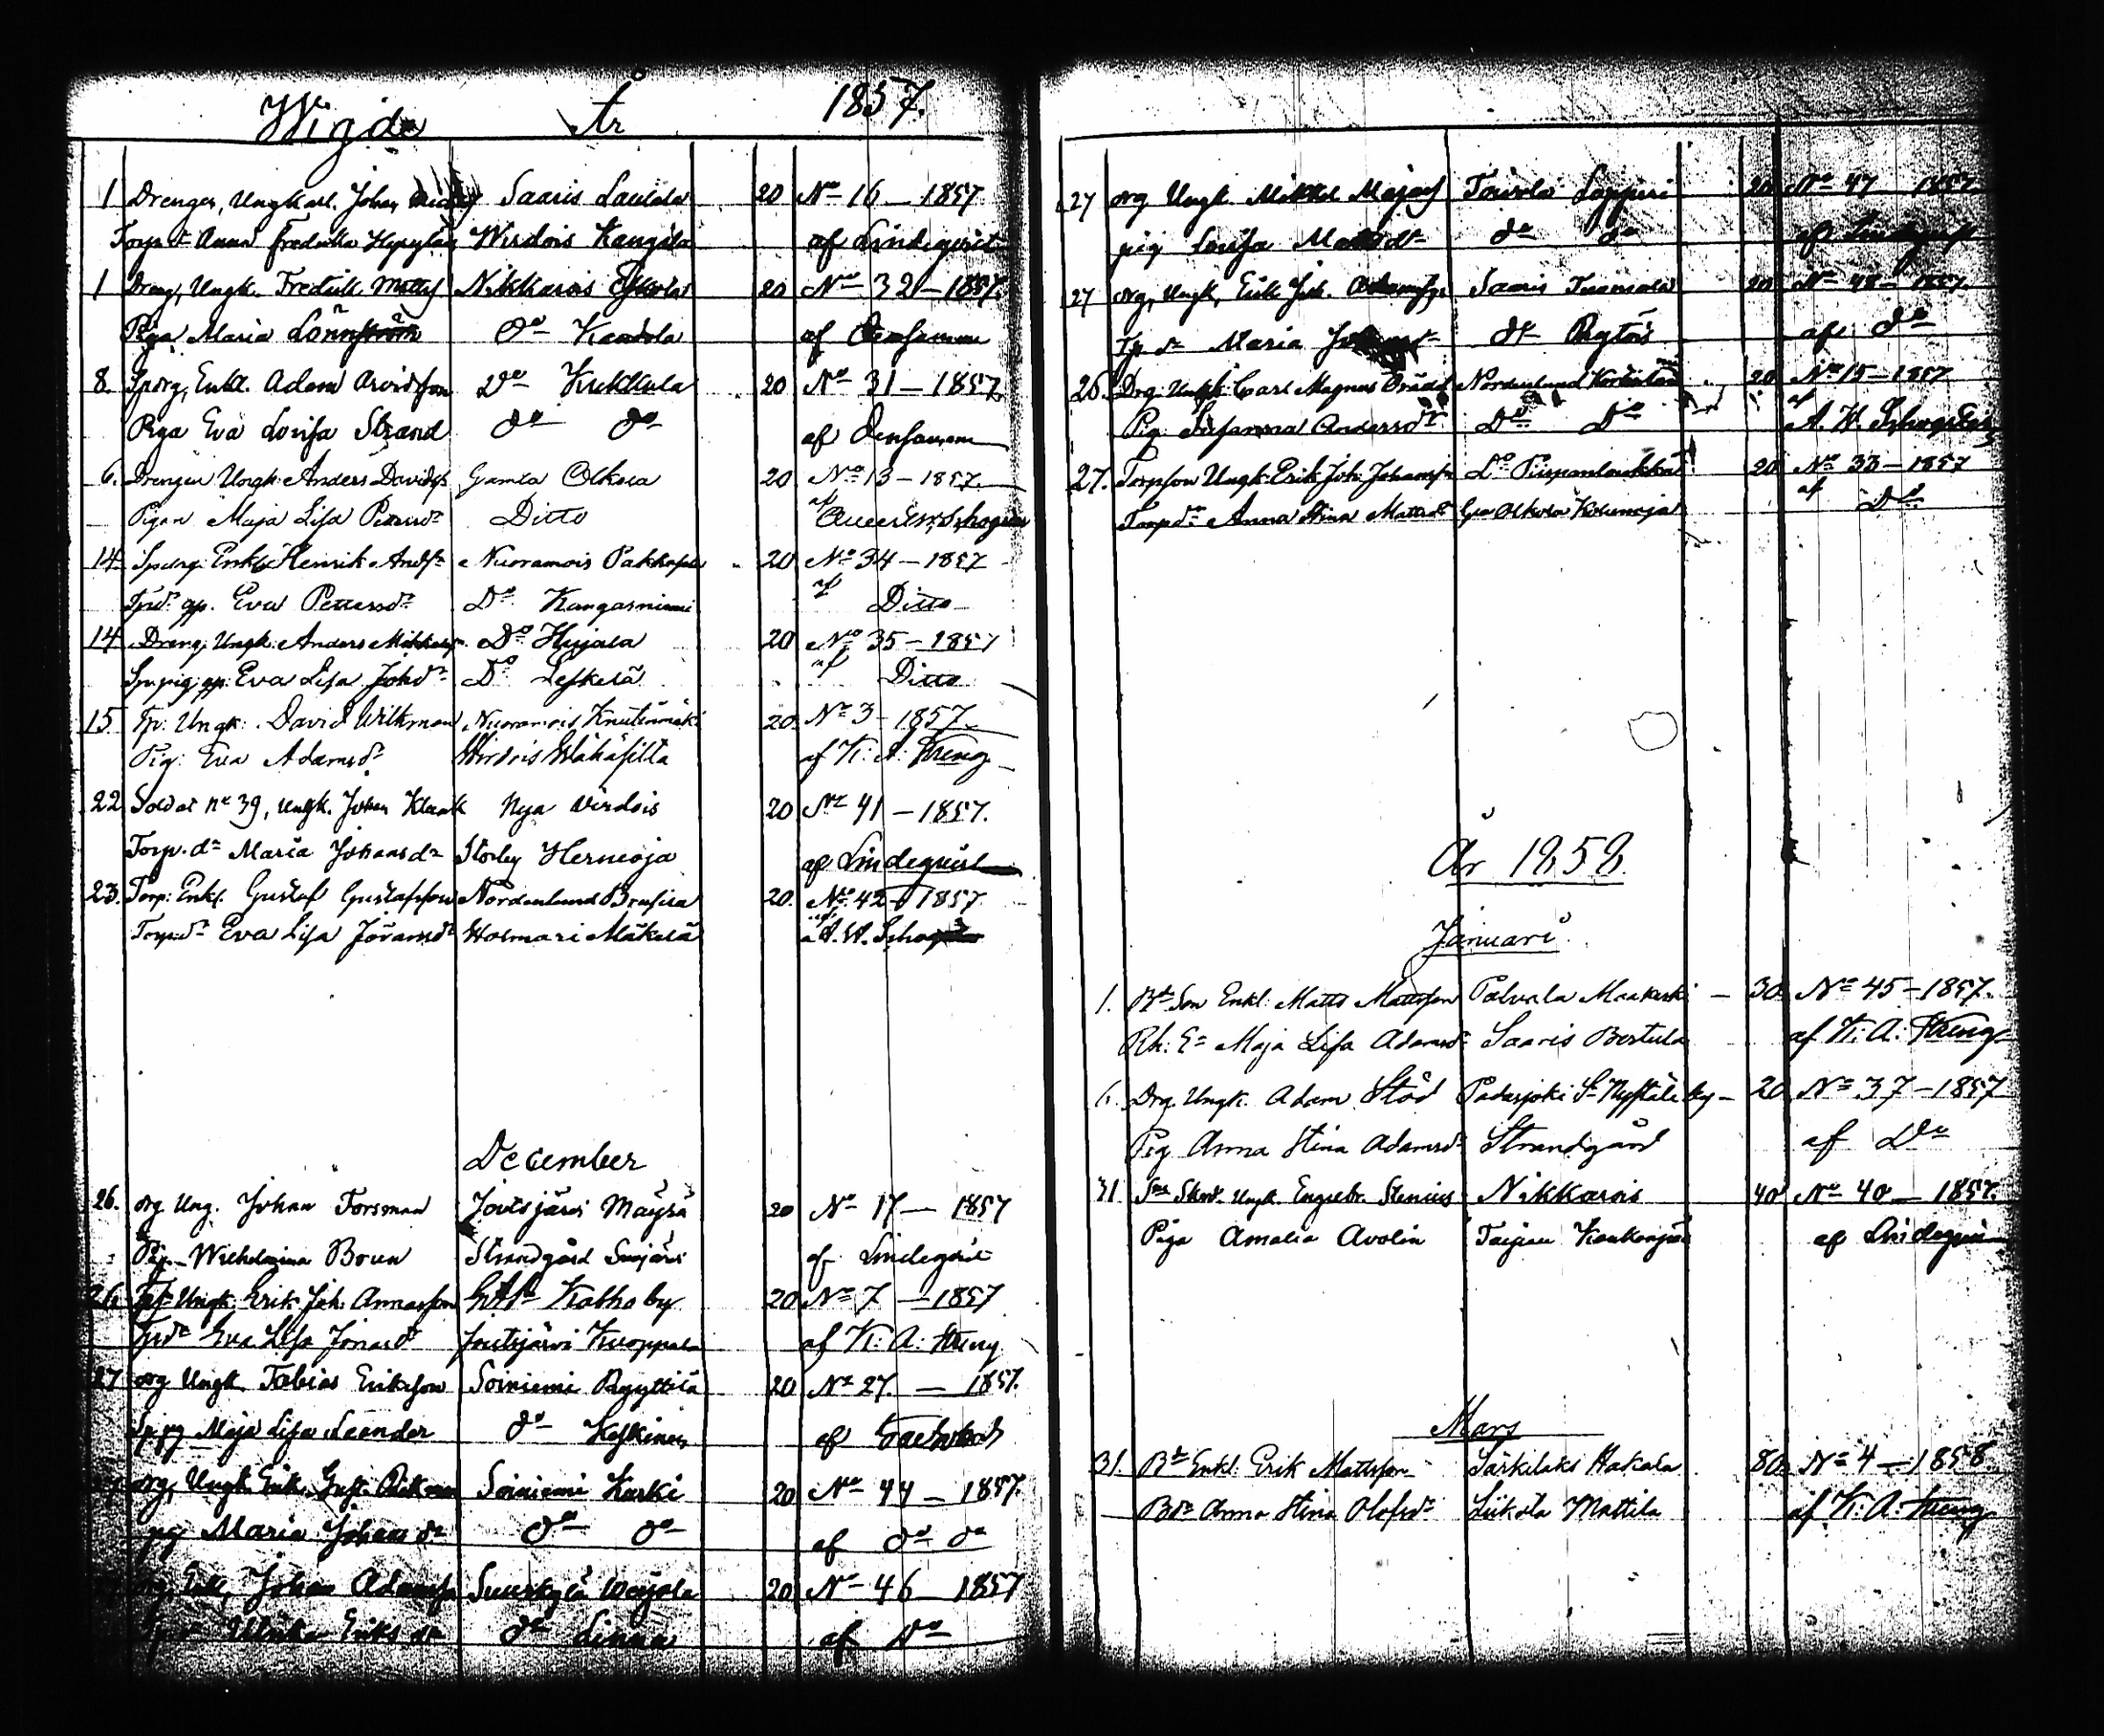 Wigde År 1857.
1 Drengen, Ungkarl. Johan Saaris Laulala 20 No 16 — 1857
Torp.dr Anna Fredrika Wirdois Kangola af Lindeqvist
1 Dreng, Ungk. Fredrik Matts Nikkarois Eskola 20 No 32 — 1857.
Piga Maria Lönnström do Kandola af Densamme
8. Enkl. Adam Arvidsson Do Kukkula 20 No 31 — 1857.
Piga Eva Lovisa Strand do do af Densamme
6. Drengen Ungk: Anders Davids Gamla Olkola 20 No 13 — 1857.
Pigan Maja Lisa Pettersdr Ditto af
14. Enkl: Henrik Andss Nuoramois Pakkasela 20 No 34 — 1857
gp. Eva Pettersdr Do Kangasniemi af Ditto
14. Dreng. Ungk: Anders Do Hyjala 20 No 35 — 1857
gp: Eva Lisa Johdr Do Leskelä af Ditto
15 Tp. Ungk: David Wilkman Nuoramois Knutinmäki 20 No 3 — 1857
Pig: Eva Adamsdr Wirdois Wähäsilta af K: A: Streng
22 Soldat no 39, Ungk. Johan Klank Nya Virdois 20 No 41 — 1857.
Torp. dr Maria Johansdr Storby Hernioja af Lindeqvist
23. Torp: Enkl. Gustaf Gustafsson Nordenlund Brusila 20. No 42 — 1857
Torp:dr Eva Lisa Göransdr Wolmari Mäkelä af A. W. Schogster
December
26. drg Ung. Johan Forsman Joutsjärvi Mäyrä 20 No 17 — 1857
Pig. Wilhelmina Boun Strandgård af Lindeqvist
26. Ungk. Erik Joh. Annasson Kalho by 20 No 7 — 1857
Eva Lisa Jonasdr Joutsjärvi Kuoppala af K: A: Streng
27 drg Ungk. Tobias Eriksson Soiniemi Ryyttilä 20 No 27. — 1857.
Maja Lisa Leander do Keskinen af
drg, Ungk Erik. Gust. Soiniemi Kurki 20 No 44 — 1857.
pig Maria Johansdr do do af do do
drg, Enkl, Johan Adamss Suurkylä Weijola 20 No 46 — 1857
Ulrika Eriksdr do Linna af Do
27 drg Ungk. Mikkel Majas Toivola Loppuri 20 No 47 — 1857.
pig Lovisa Mattsdr do do af Lindeqvist
27 drg, Ungk, Erik Joh. Saaris 20 No 48 — 1857.
Tp. dr Maria do af do
26. Drg. Ungk: Carl Magnus Nordenlund 20 No 15 — 1857
Pig. Susanna Andersdr Do Do af A. W. Schogster
27. Torpson Ungk: Erik Joh: Johansson Do 20 No 33 — 1857
Torp:dr Anna Stina Mattsdr Gla Olkola af Do
År 1858.
Januari
1. Bd Son Enkl: Matts Mattsson Palvala Maakeski — 30 No 45 — 1857.
Rh: Ea Maja Lisa Adamsdr Saaris Bertula af K: A: Streng
6. Drg. Ungk. Adam Stöd Padasjoki by — 20 No 37 — 1857
Pig Anna Stina Adamsdr Strandgård af Do
31. Ungk. Engelbr. Stenius Nikkarois 40 No 40 — 1857.
Piga Amalia Avolin Taipale af Lindeqvist
Mars
31. Bd Enkl: Erik Mattsson Särkilaks Hakala 80 No 4 — 1858.
Bdr Anna Stina Olofsdr Liikola Mattila af K: A: Streng